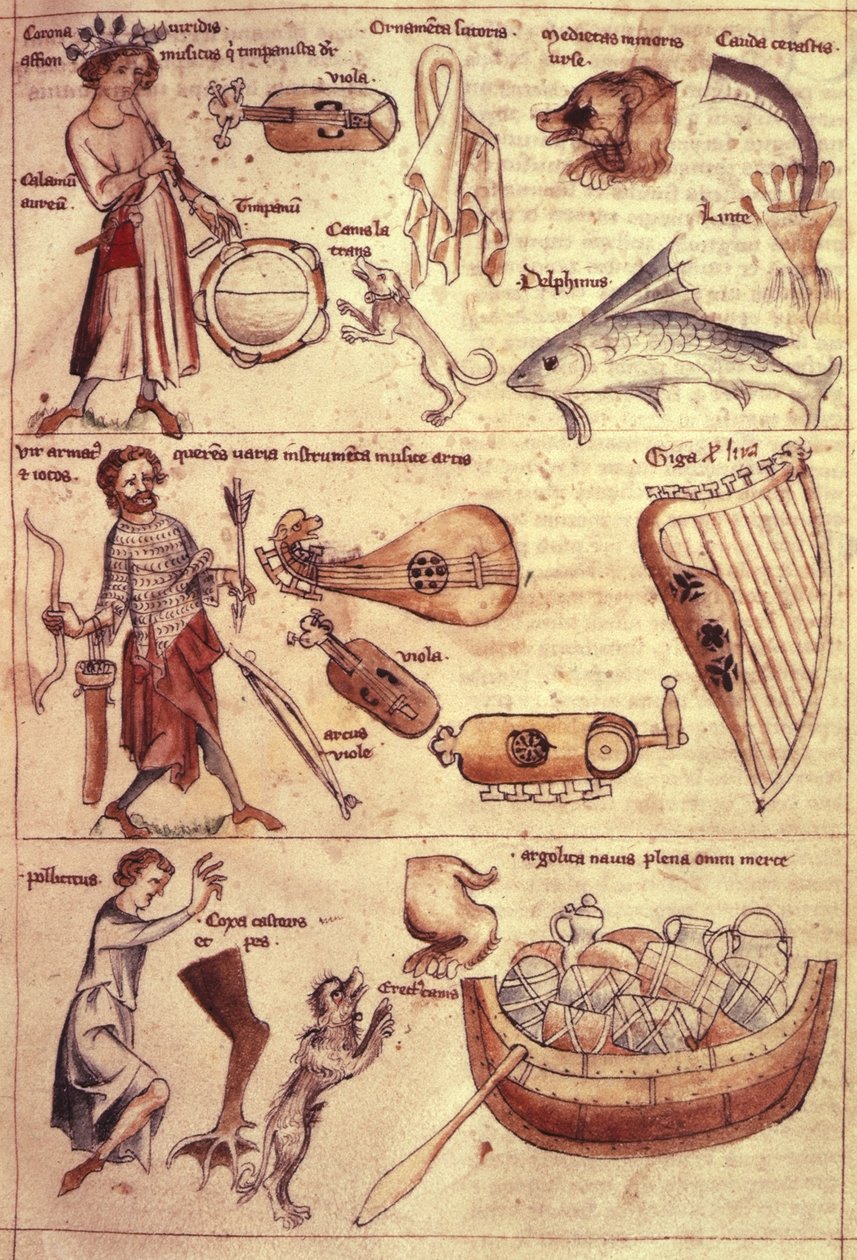 Corona uiridis.
affion musicus q̉ timpanista dr̃
viola.
Ornamẽta sutoris.
Medietas minoris
urse.
Cauda cerastis.
Calamũ
aureũ.
Timpanũ
Canis la
trans
Linte
Delphinus.
Vir armatꝰ querẽs uaria instrumẽta musice artis
⁊ iocos.
Giga ł lira
viola.
arcus
viole
pollicitus.
Coxa castoris
et pes.
argolica nauis plena omni merce
Erectꝰ canis